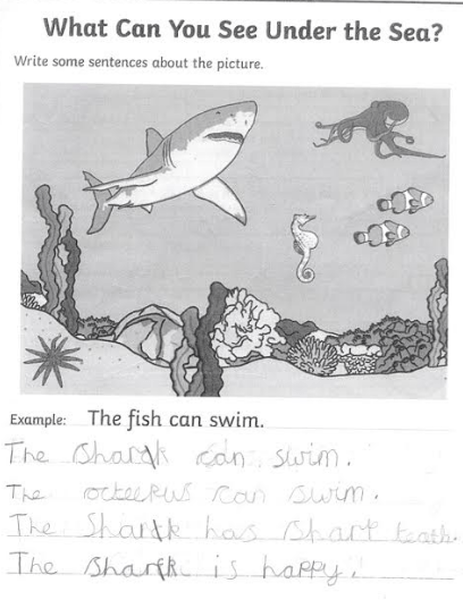 What Can You See Under the Sea?
Write some sentences about the picture.
Example: The fish can swim.
The shark can swim.
The octeepus can swim.
The shark has shart teath.
The shark is happy.